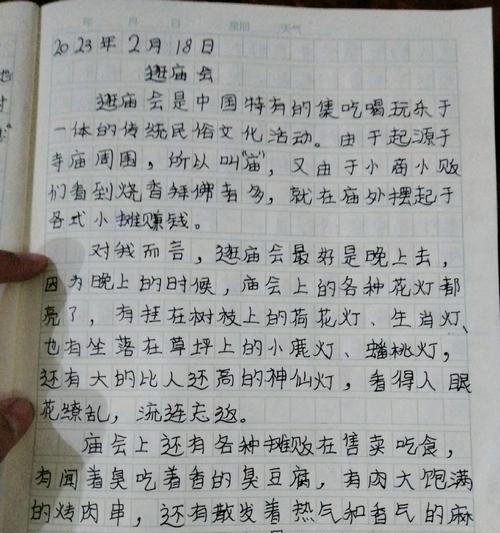 年 月 日 星期 天气
2023年2月18日
逛庙会
逛庙会是中国特有的集吃喝玩乐于
一体的传统民俗文化活动。由于起源于
寺庙周围，所以叫“庙”，又由于小商小贩
们看到烧香拜佛者多，就在庙外摆起于
各式小摊赚钱。
对我而言，逛庙会最好是晚上去，
因为晚上的时候，庙会上的各种花灯都
亮了，有挂在树枝上的荷花灯、生肖灯、
也有坐落在草坪上的小鹿灯、蟠桃灯，
还有大的比人还高的神仙灯，看得人眼
花缭乱，流连忘返。
庙会上还有各种摊贩在售卖吃食，
有闻着臭吃着香的臭豆腐，有肉大饱满
的烤肉串，还有散发着热气和香气的麻